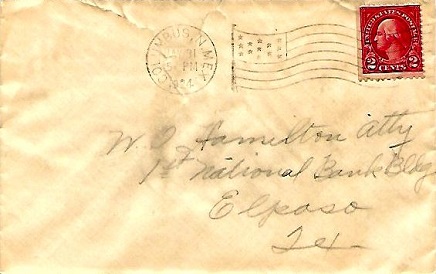 COLUMBUS, N. MEX.
31
5 PM
1924
UNITED STATES POSTAGE
2 CENTS 2
W. O. Hamilton Atty
1st National Bank Bldg
Elpaso
Tex.